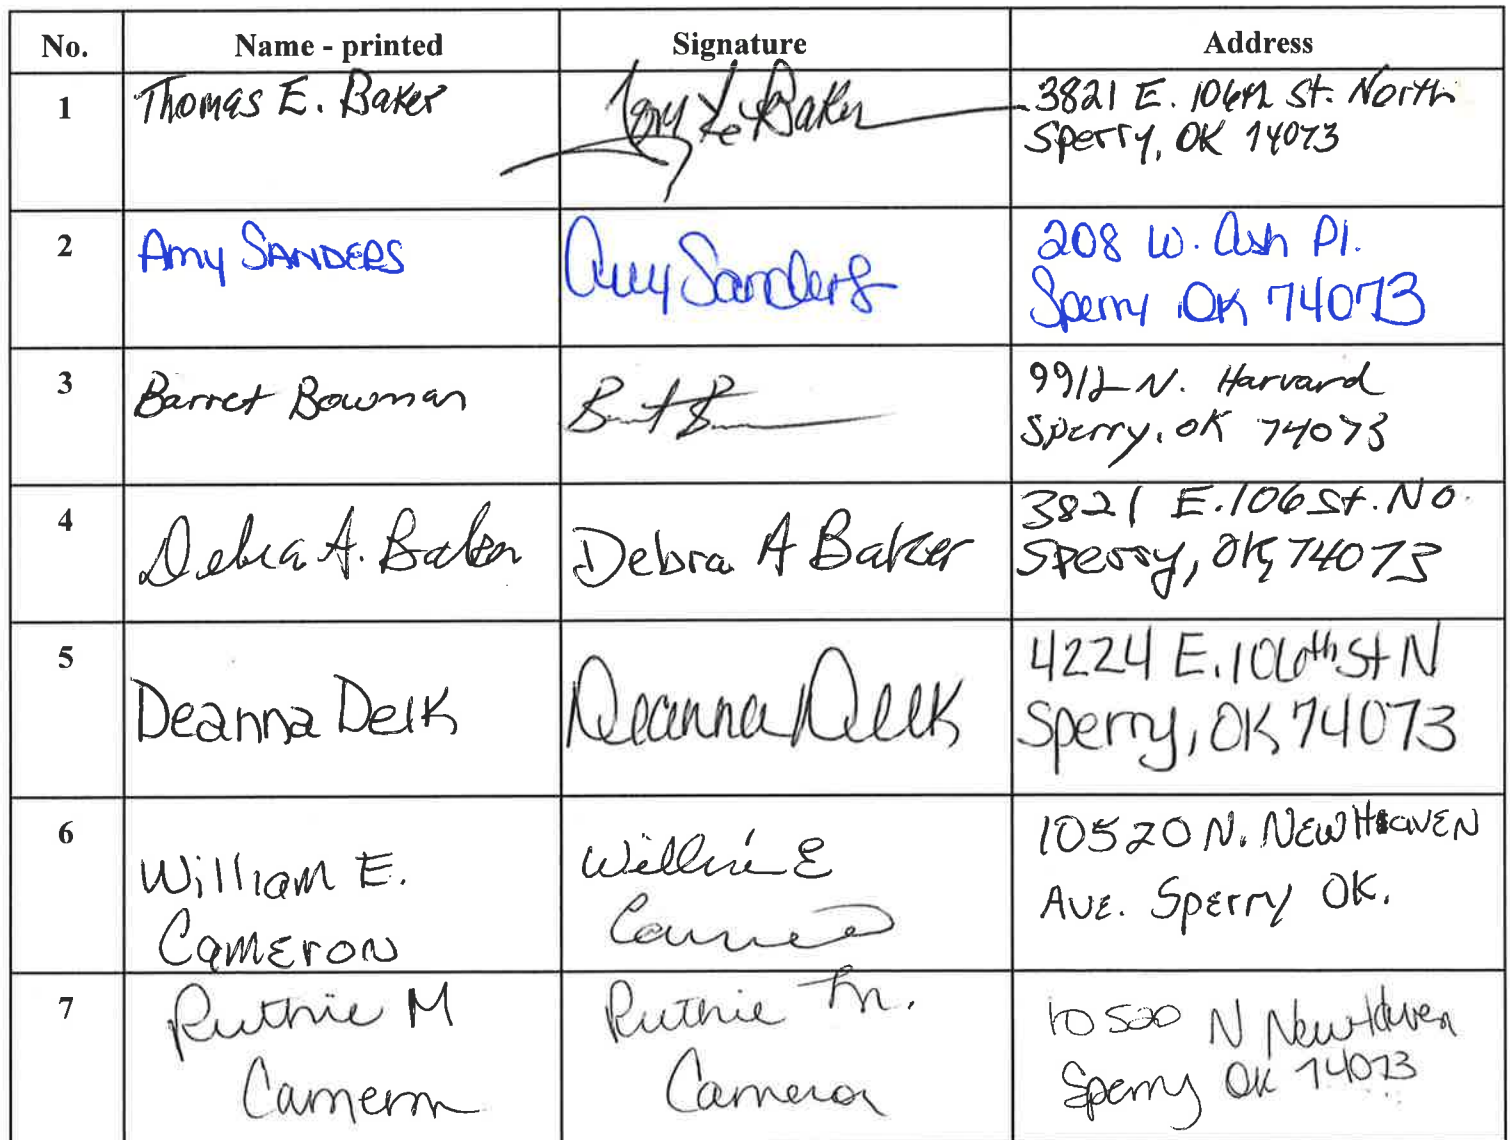 No. Name - printed Signature Address
1 Thomas E. Baker Baker 3821 E. 106th St. North
Sperry, OK 74073
2 Amy SANDERS Amy Sanders 208 W. Ash Pl.
Sperry OK 74073
3 Barret Bowman 9912 N. Harvard
Sperry, OK 74073
4 Debra A. Baker Debra A Baker 3821 E. 106 St. No.
Sperry, OK, 74073
5 Deanna Delk Deanna Delk 4224 E. 106th St N
Sperry, OK 74073
6 William E. Cameron Willie E 10520 N. NEWHAVEN
AVE. Sperry OK.
7 Ruthie M Cameron Ruthie M. Cameron 10520 N NewHaven
Sperry OK 74073